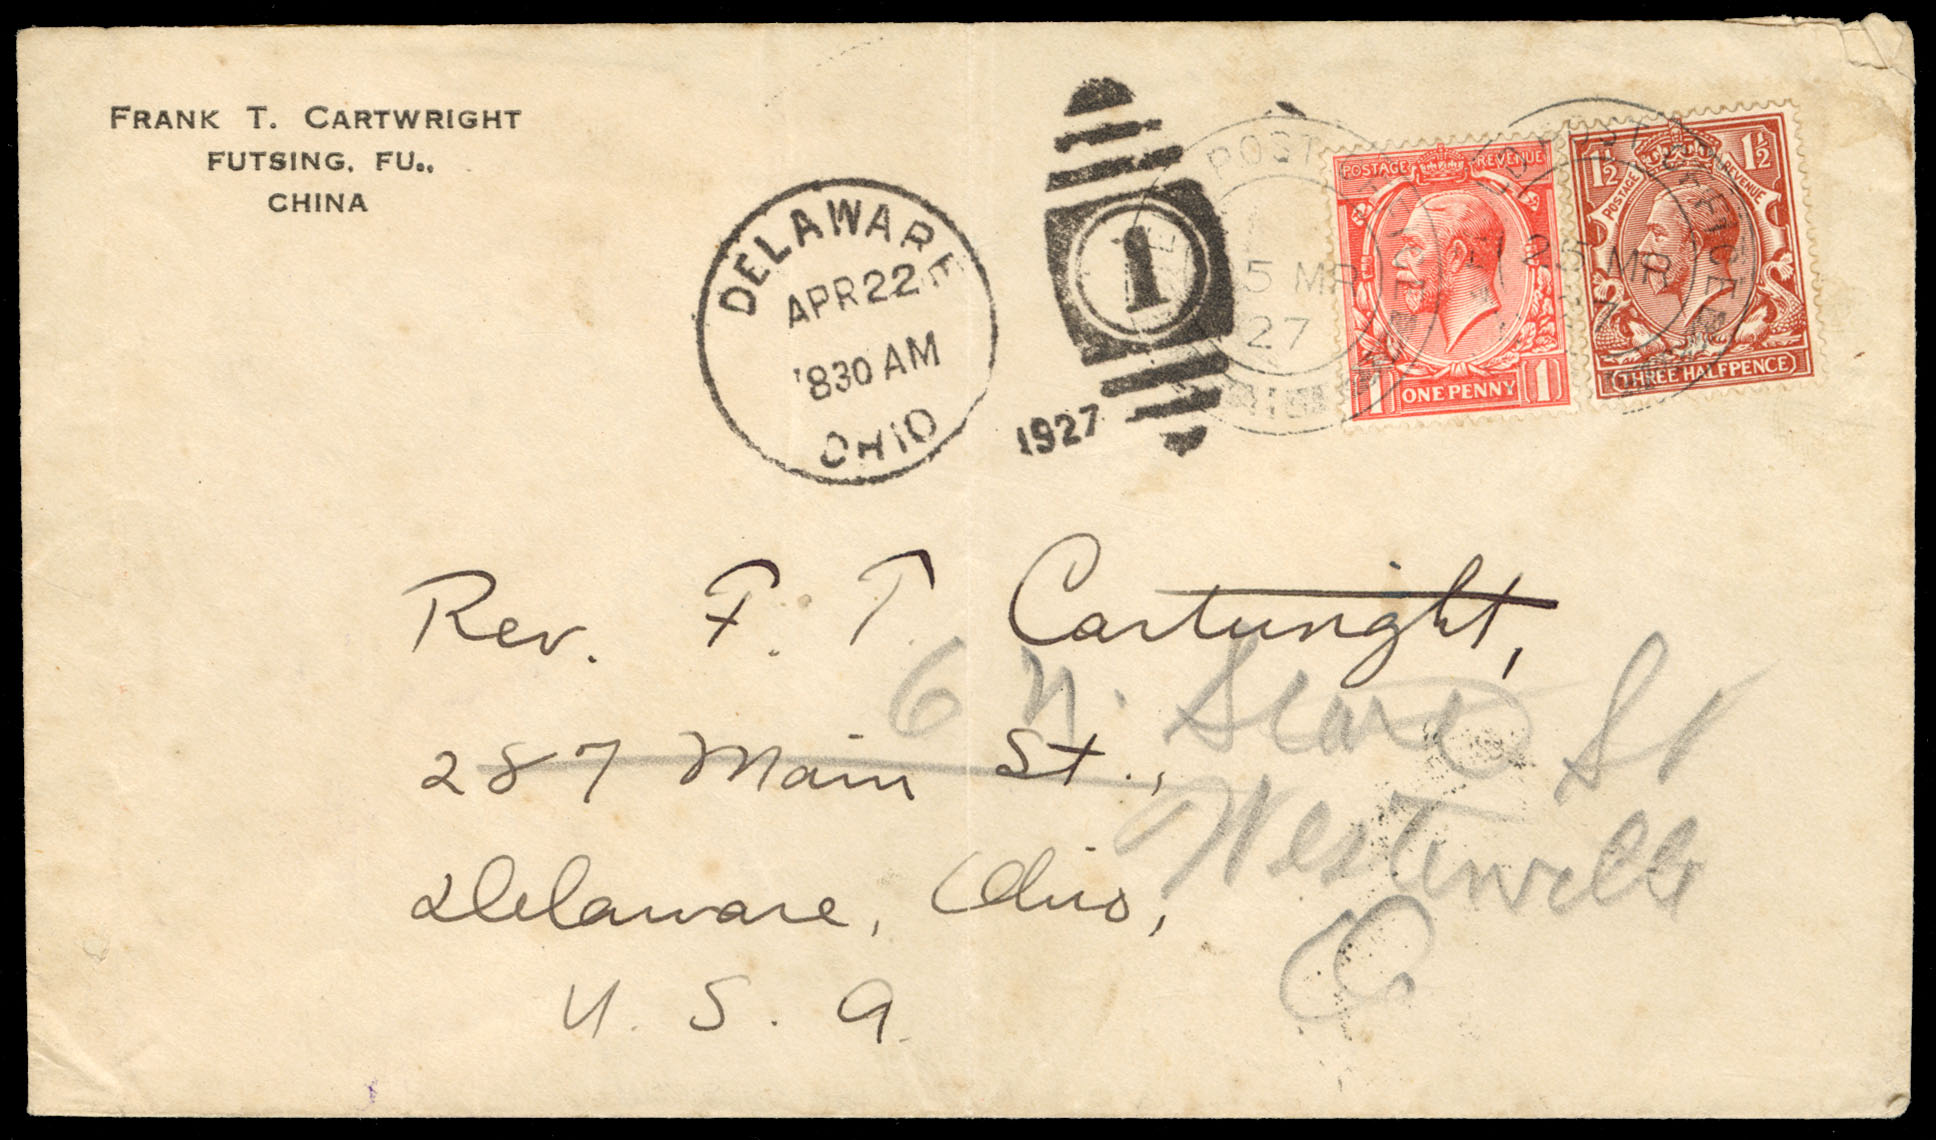 FRANK T. CARTWRIGHT
FUTSING, FU.,
CHINA
DELAWARE
APR 22
830 AM
OHIO
1927
1
POST
5 MR
27
POSTAGE REVENUE
1 ONE PENNY 1
POST OFFICE
25 MR
27
1½ 1½
POSTAGE REVENUE
THREE HALFPENCE
Rev. F. T. Cartwright,
287 Main St.,
Delaware, Ohio,
U. S. A.
6 N. St
Westerville
O